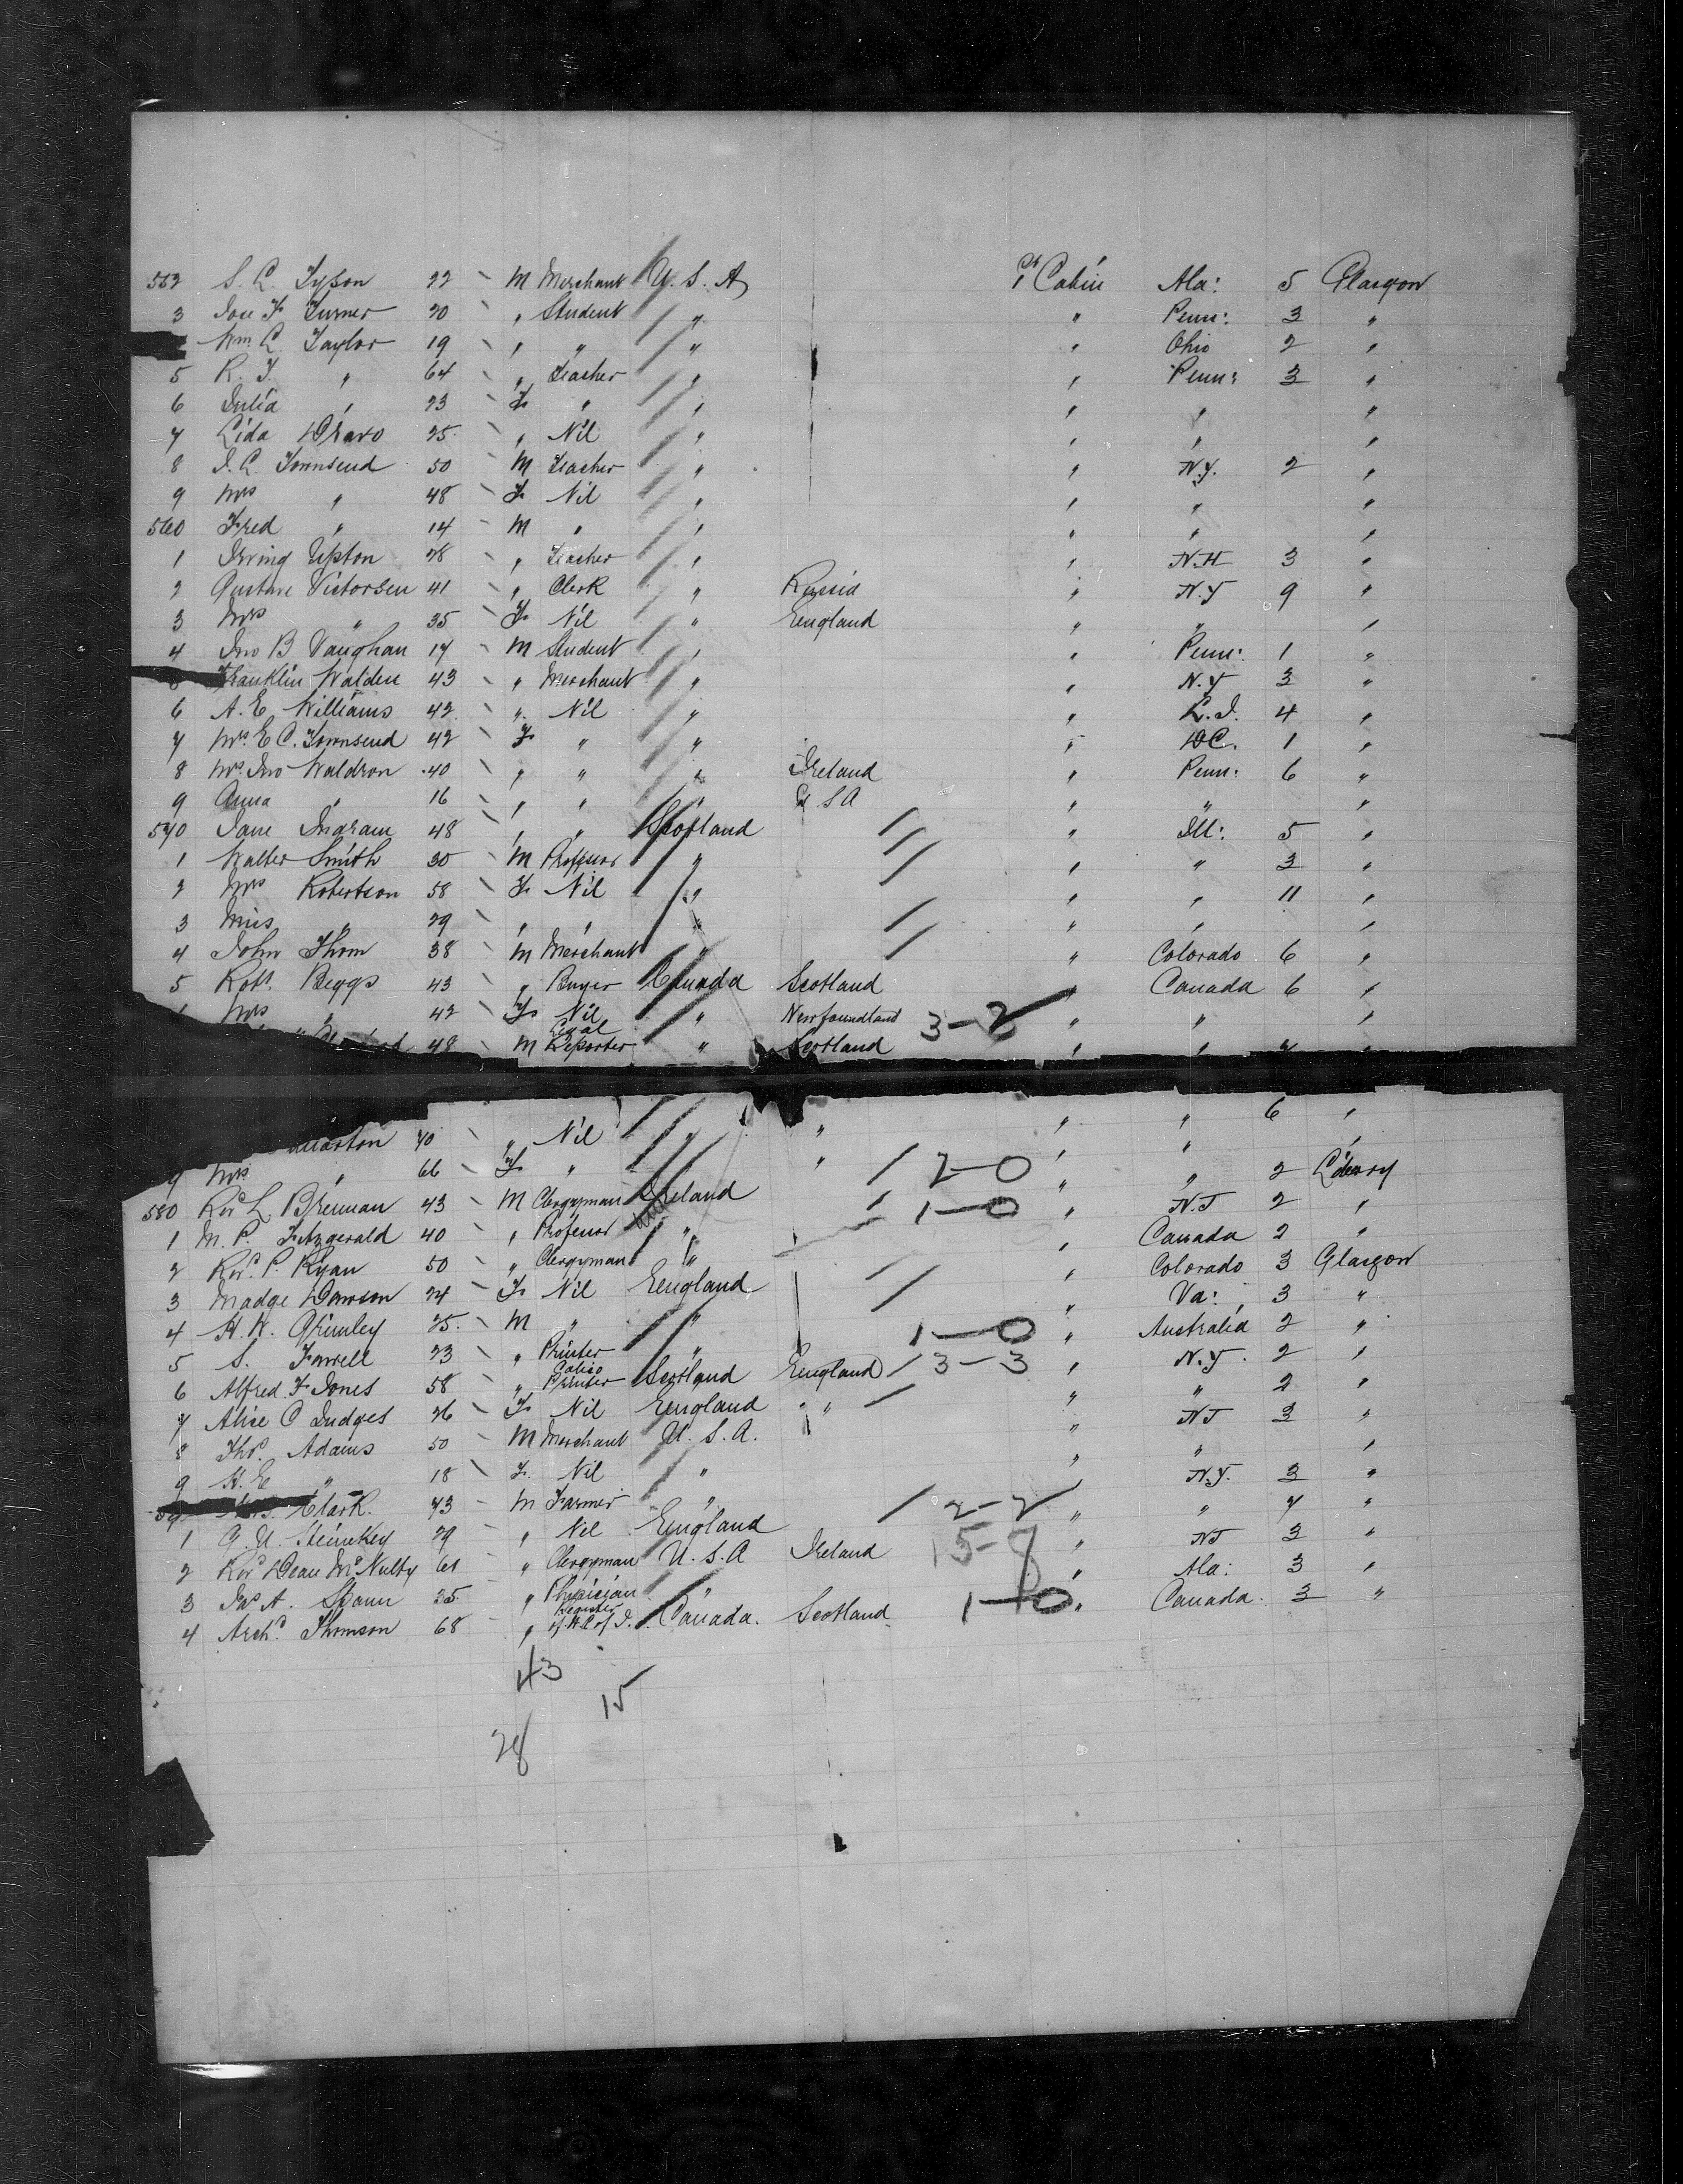 552 S. L. Tyson 22 M Merchant U. S. A 1st Cabin Ala: 5 Glasgow
3 Jos F Turner 20 " Student " " Penn: 3 "
Wm. C. Taylor 19 " " " " Ohio 2 "
5 R. T. " 64 " Teacher " " Penn: 3 "
6 Julia " 23 F " " " " "
7 Lida Dravo 25 " Nil " " " "
8 J. C. Townsend 50 M Teacher " " N.Y. 2 "
9 Mrs " 48 F Nil " " " "
560 Fred " 14 M " " " " "
1 Irving Upton 28 " Teacher " " N.H 3 "
2 Gustave Victorsen 41 " Clerk " Russia " N.Y 9 "
3 Mrs " 35 F Nil " England " " "
4 Jno B Vaughan 17 M Student " " Penn: 1 "
Franklin Walden 43 " Merchant " " N.Y 3 "
6 A. E. Williams 42 " Nil " " 4 "
7 Mrs E C. Townsend 42 F " " " DC. 1 "
8 Mrs Jno Waldron 40 " " " Ireland " Penn: 6 "
9 Anna " 16 " " " U S A " " "
570 Jane Ingram 48 " " Scotland " Ill: 5 "
1 Walter Smith 30 M Professor " " " 3 "
2 Mrs Robertson 58 F Nil " " " 11 "
3 Miss " 29 " " " " " "
4 John Thom 38 M Merchant " " Colorado 6 "
5 Robt. Beggs 43 " Buyer Canada Scotland " Canada 6 "
Mrs " 42 F Nil " Newfoundland 3-2 " " "
48 M Legal Reporter " Scotland " " "
70 " Nil " " " " 6 "
9 Mrs " 66 F " " " " "
580 Revd L. Brennan 43 M Clergyman Ireland 2-0 " " 2 L'derry
1 M. P. Fitzgerald 40 " Professor " 1-0 " N.J 2 "
2 Revd. P. Ryan 50 " Clergyman " " Canada 2 "
3 Madge Dawson 24 F Nil England " Colorado 3 Glasgow
4 H. W. Grimley 25 M " " " Va: 3 "
5 S. Farrell 23 " Printer " 1-0 " Australia 2 "
6 Alfred F Jones 58 " Calico Printer Scotland England 3-3 " N.Y. 2 "
7 Alice C Judges 26 F Nil England " " " 2 "
8 Thos. Adams 50 M Merchant U. S. A. " NJ 3 "
9 H. E " 18 F. Nil " " " "
Clark. 73 M Farmer " " N.Y. 3 "
1 G. U. Steinkey 29 " Nil England 2-2 " " 7 "
2 Revd Dean McNulty 61 " Clergyman U. S. A Ireland 15-7 " NJ 3 "
3 A. Spann 35 " Physician " " Ala: 3 "
4 Archd. Thomson 68 " Register of Canada. Scotland 1-0 " Canada. 3 "
43
15
28